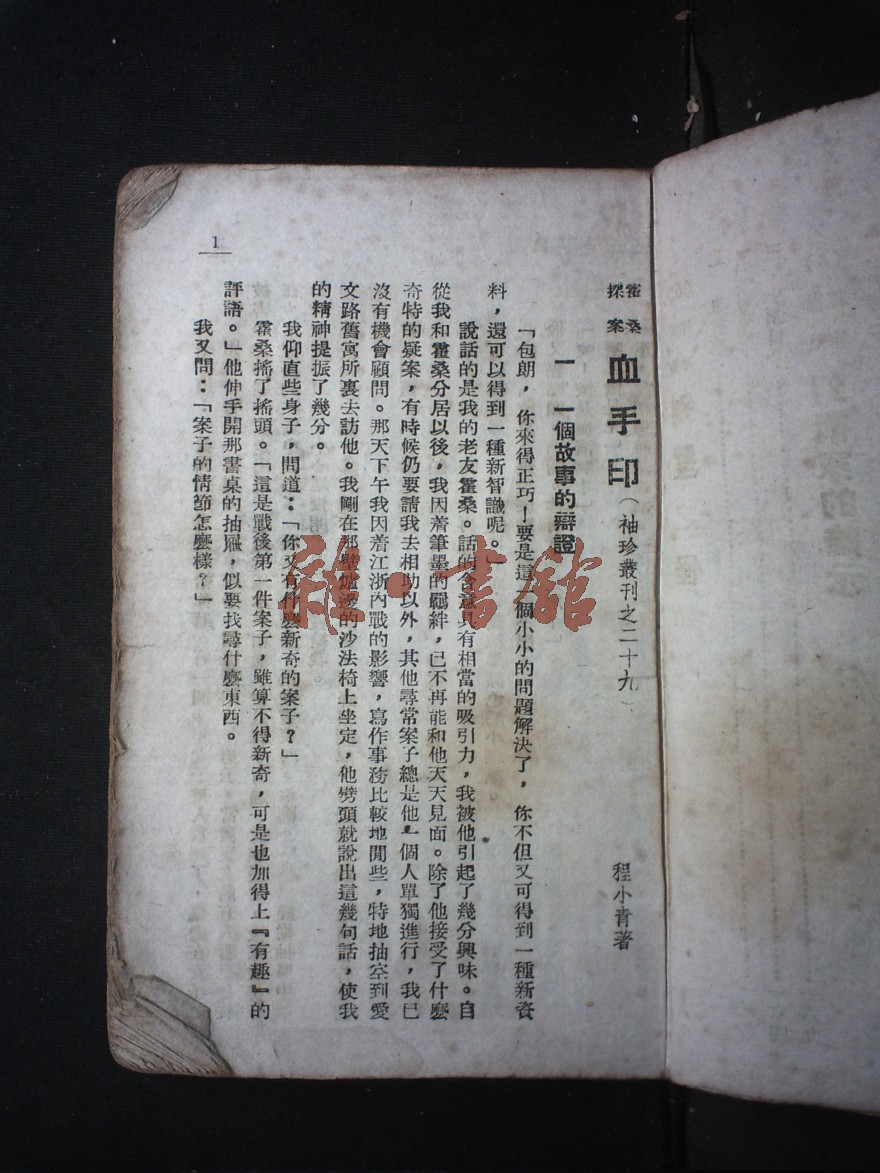 霍桑
探案
血手印（袖珍叢刊之二十九）
程小青著
一　一個故事的辯證
「包朗，你來得正巧！要是這一個小小的問題解決了，你不但又可得到一種新資
料，還可以得到一種新智識呢。」
說話的是我的老友霍桑。話的含意具有相當的吸引力，我被他引起了幾分興味。自
從我和霍桑分居以後，我因着筆墨的羈絆，已不再能和他天天見面。除了他接受了什麼
奇特的疑案，有時候仍要請我去相助以外，其他尋常案子總是他一個人單獨進行，我已
沒有機會顧問。那天下午我因着江浙內戰的影響，寫作事務比較地閒些，特地抽空到愛
文路舊寓所裏去訪他。我剛在那壁爐邊的沙法椅上坐定，他劈頭就說出這幾句話，使我
的精神提振了幾分。
我仰直些身子，問道：「你又有什麼新奇的案子？」
霍桑搖了搖頭。「這是戰後第一件案子，雖算不得新奇，可是也加得上『有趣』的
評語。」他伸手開那書桌的抽屜，似要找尋什麼東西。
我又問：「案子的情節怎麼樣？」
1
雜·書館